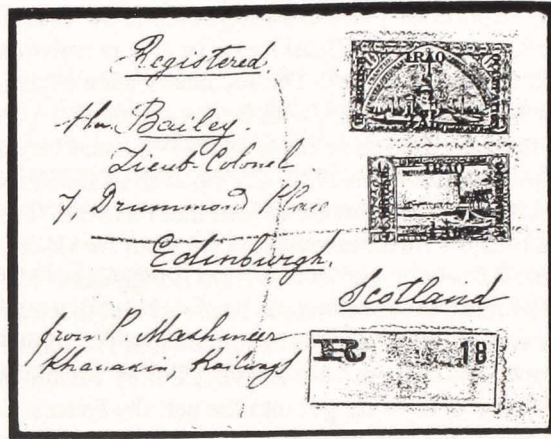 Registered.
Bailey.
Lieut-Colonel
7, Drummond Place
Edinburgh.
Scotland
from P. Mashineer
Khanakin, Railways
IRAQ
IRAQ
R 18